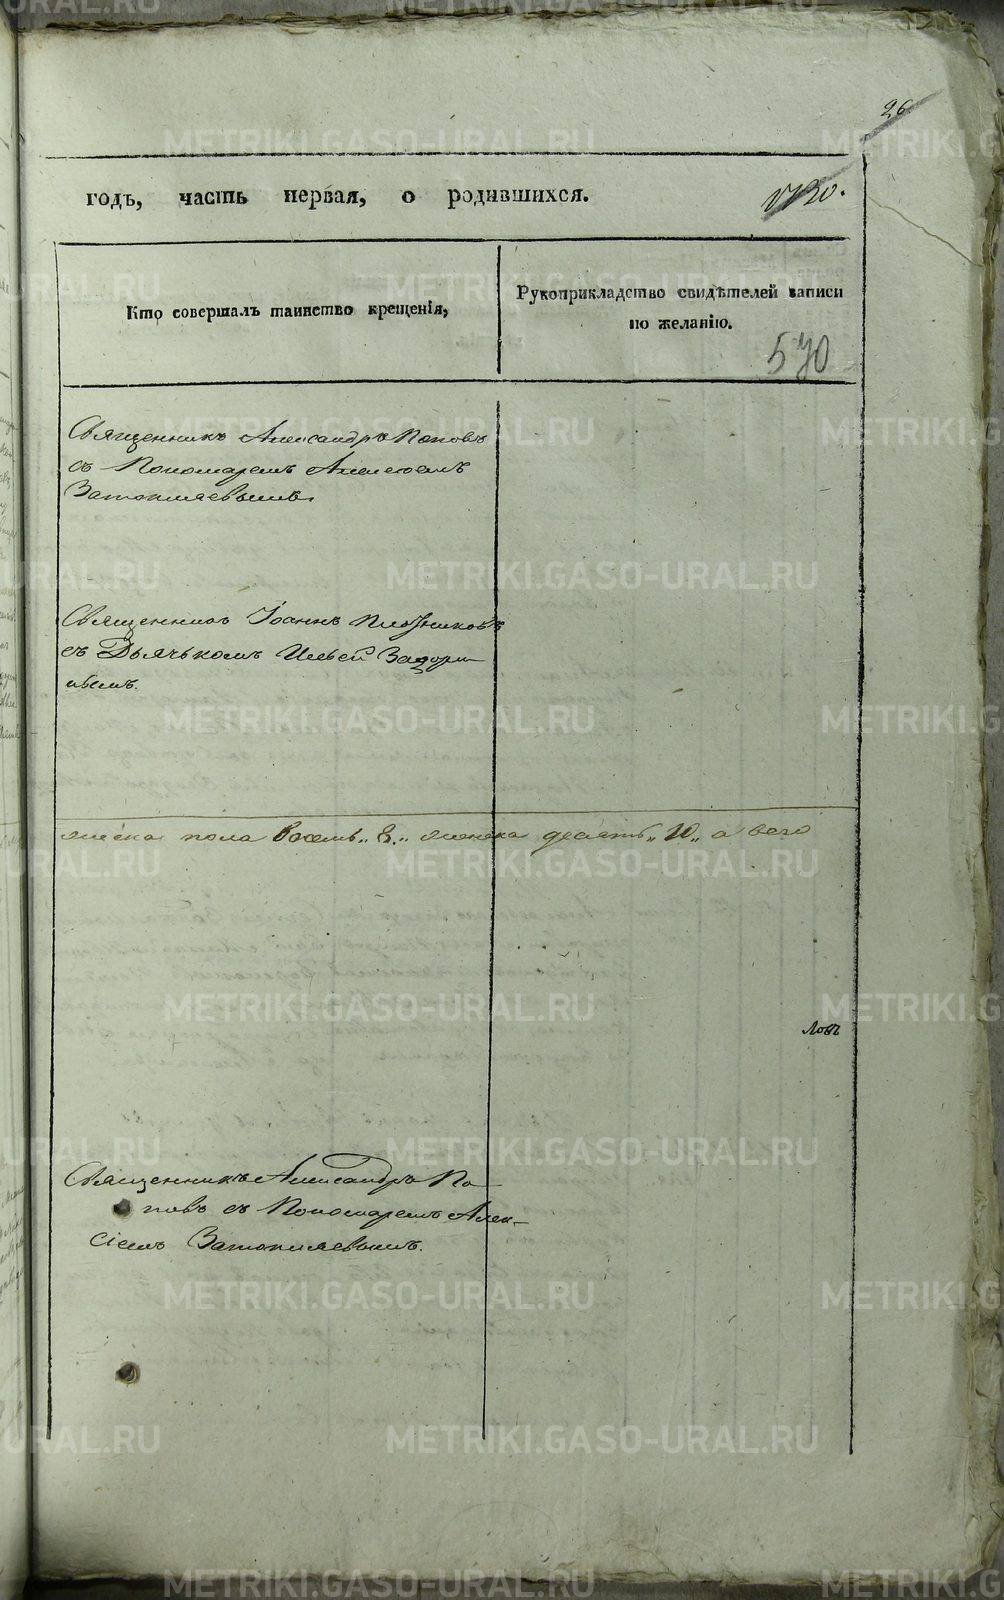 26
годъ, часть первая, о родившихся.
Кто совершалъ таинство крещенія,
Рукоприкладство свидѣтелей записи
по желанію.
570
Священникъ Александръ Поповъ
съ Пономаремъ Алексѣемъ
Затопляевымъ.
Священникъ Іоаннъ Плотниковъ
съ Дьячькомъ Ильей Задори-
нымъ.
пола восемь „8.„ женска десять „10„ а всего
Священникъ Александръ По-
повъ съ Пономаремъ Алек-
сіемъ Затопляевымъ.
METRIKI.GASO-URAL.RU